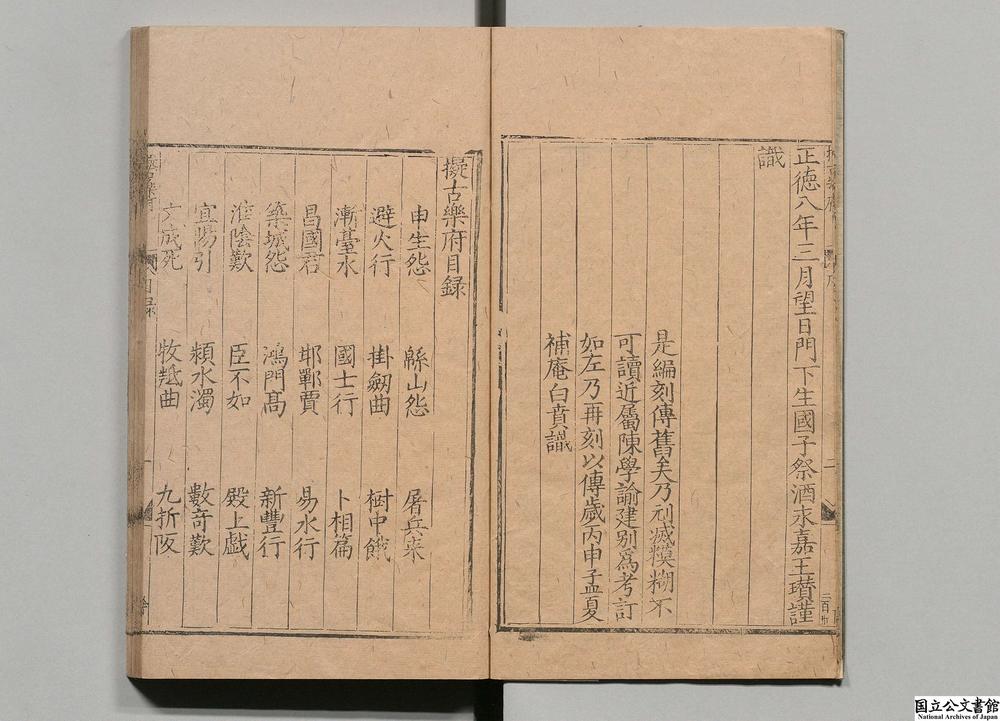 正德八年三月望日門下生國子祭酒永嘉王瓚謹
識
是編刻傳舊矣乃刓滅糢糊不
可讀近屬陳學諭建别為考訂
如左乃再刻以傳歲丙申孟夏
補庵白賁識
擬古樂府目録
申生怨 緜山怨 屠兵来
避火行 掛劒曲 樹中餓
漸臺水 國士行 卜相篇
昌國君 邯鄲賈 易水行
築城怨 鴻門髙 新豐行
淮陰歎 臣不如 殿上戯
宜陽引 頴水濁 數竒歎
文成死 牧羝曲 九折阪
国立公文書館
National Archives of Japan